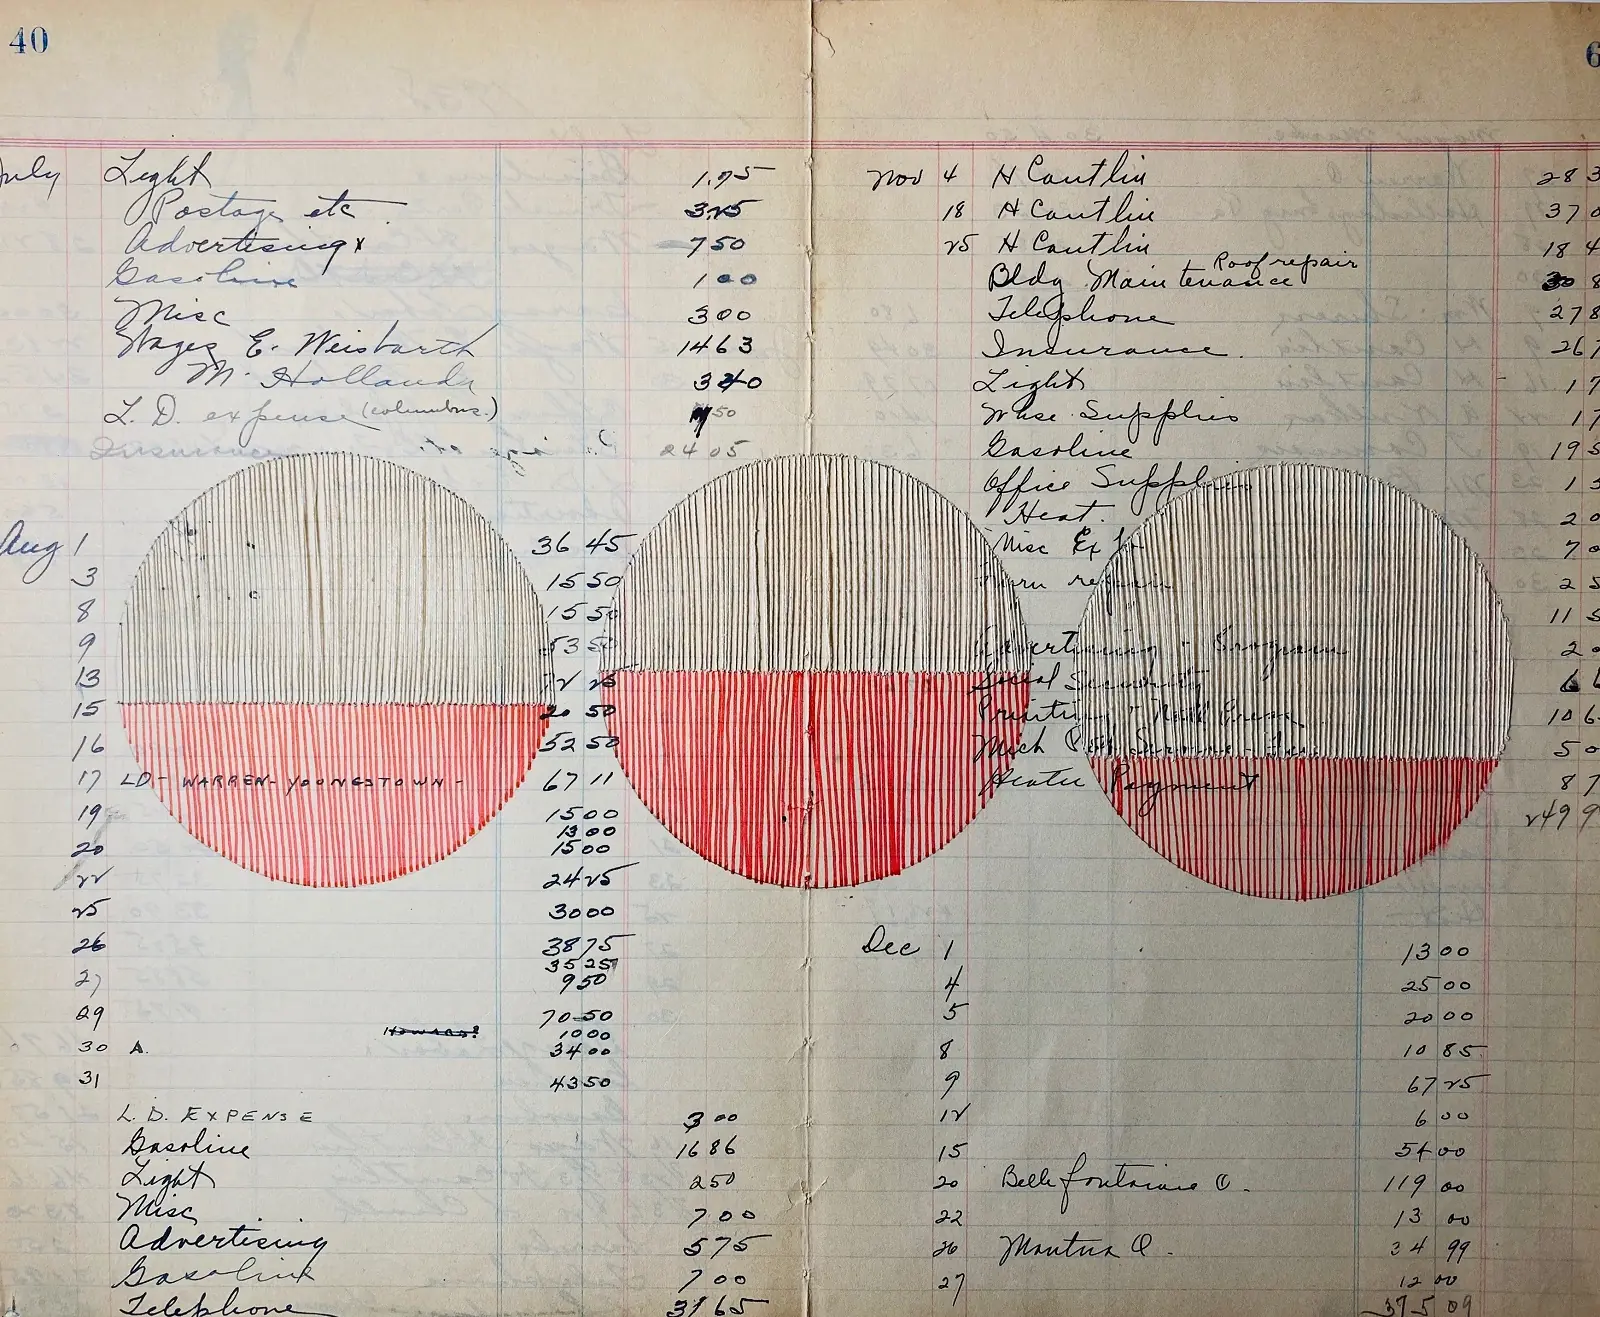 40
July Light 1.75
Postage etc. 3.25
Advertising x 7 50
Gasoline 1 00
Misc 3 00
Wages E. Weisbarth 14 63
M. Hollanda 3 40
L. D. expense (columbus.) 50
Insurance 24 05
Aug 1 36 45
3 15 50
8 15 50
9 53 50
13 25
15 20 50
16 52 50
17 LD - WARREN - YOUNGSTOWN - 67 11
19 15 00
13 00
20 15 00
22 24 25
25 30 00
26 38 75
35 25
27 9 50
29 70 50
HOWARD? 10 00
30 A. 34 00
31 43 50
L. D. EXPENSE 3 00
Gasoline 16 86
Light 2 50
Misc 7 00
Advertising 5 75
Gasoline 7 00
Telephone 31 65
6
Nov 4 H Cautlin 28 3
18 H Cautlin 37 0
25 H Cautlin 18 4
Roof repair
Bldg. Maintenance 30 8
Telephone 27 8
Insurance. 26 7
Light 1 7
Whse. Supplies 1 7
Gasoline 19 5
Office Supplies 1 5
Heat. 2 0
Misc Ex 7 0
2 5
11 5
Advertising - Program 2 0
Social Security 6
Printing 10 6
Mich 5 0
Heater Payment 8 7
249 9
Dec 1 13 00
4 25 00
5 20 00
8 10 85
9 67 25
12 6 00
15 54 00
20 Bellefontaine O. 119 00
22 13 00
26 Mantua O. 34 99
27 12 00
375 09